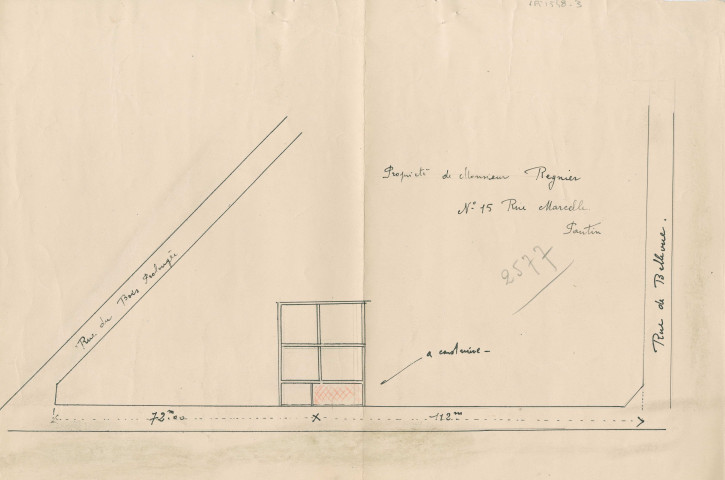 Propriété de Monsieur Regnier
N° 15 Rue Marcelle
Pantin
2577
Rue du Bois Prolongée
Rue de Bellevue.
a construire -
72m00 x 112m